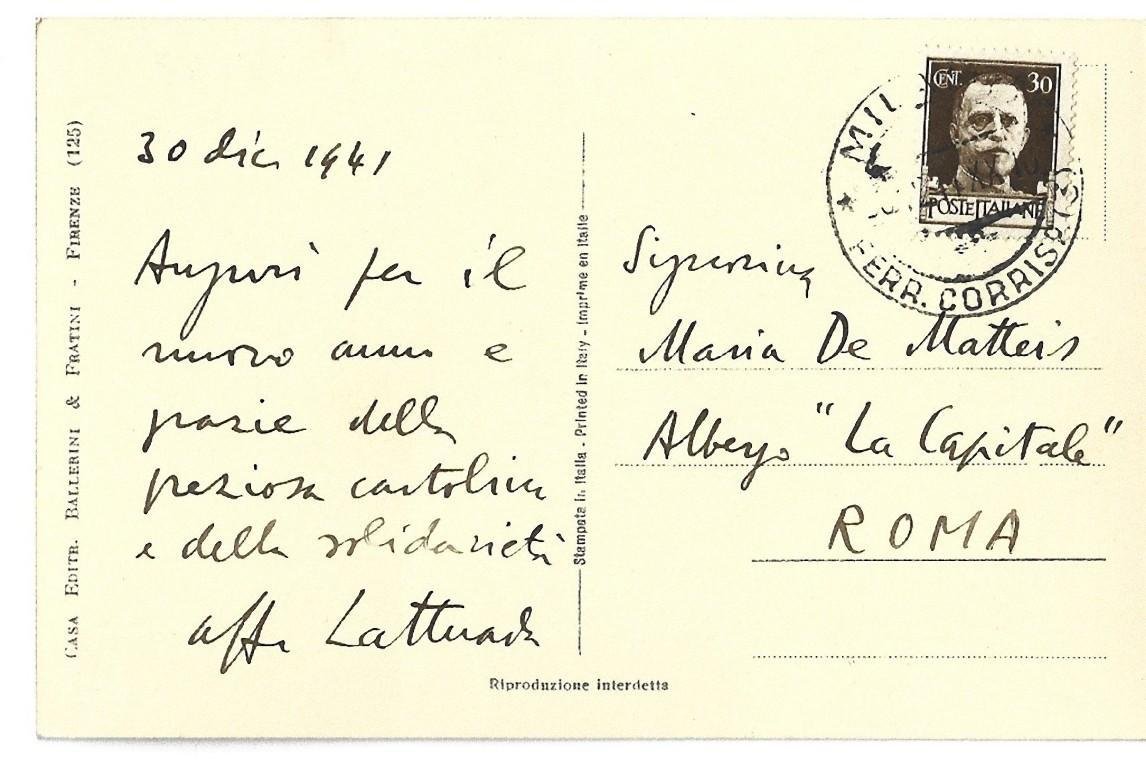 CASA EDITR. BALLERINI & FRATINI - FIRENZE (125)
30 dic 1941
Auguri per il
nuovo anno e
grazie della
preziosa cartolina
e della solidarietà
aff. Lattuada
Stampata in Italia - Printed in Italy - Imprimé en Italie
CENT. 30
POSTE ITALIANE
MIL
FERR. CORRISP. (3)
Signorina
Maria De Matteis
Albergo "La Capitale"
ROMA
Riproduzione interdetta